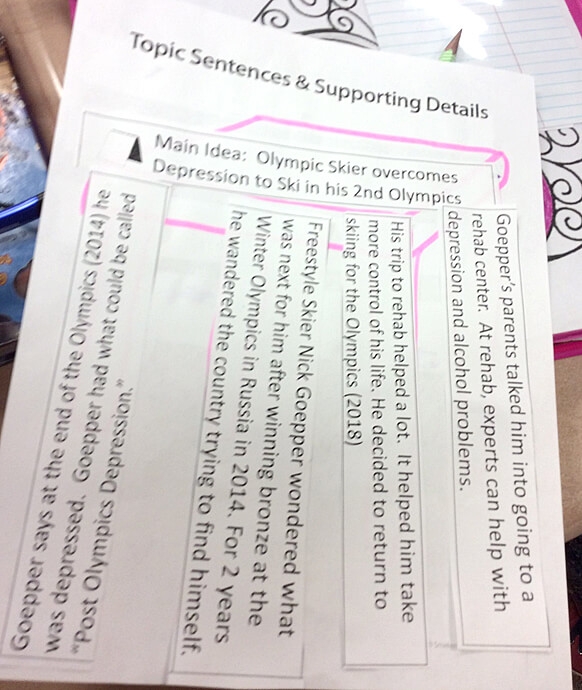 Topic Sentences & Supporting Details
Main Idea: Olympic Skier overcomes
Depression to Ski in his 2nd Olympics
Goepper's parents talked him into going to a
rehab center. At rehab, experts can help with
depression and alcohol problems.
His trip to rehab helped a lot. It helped him take
more control of his life. He decided to return to
skiing for the Olympics (2018)
Freestyle Skier Nick Goepper wondered what
was next for him after winning bronze at the
Winter Olympics in Russia in 2014. For 2 years
he wandered the country trying to find himself.
Goepper says at the end of the Olympics 2014) he
was depressed. Goepper had what could be called
"Post Olympics Depression."